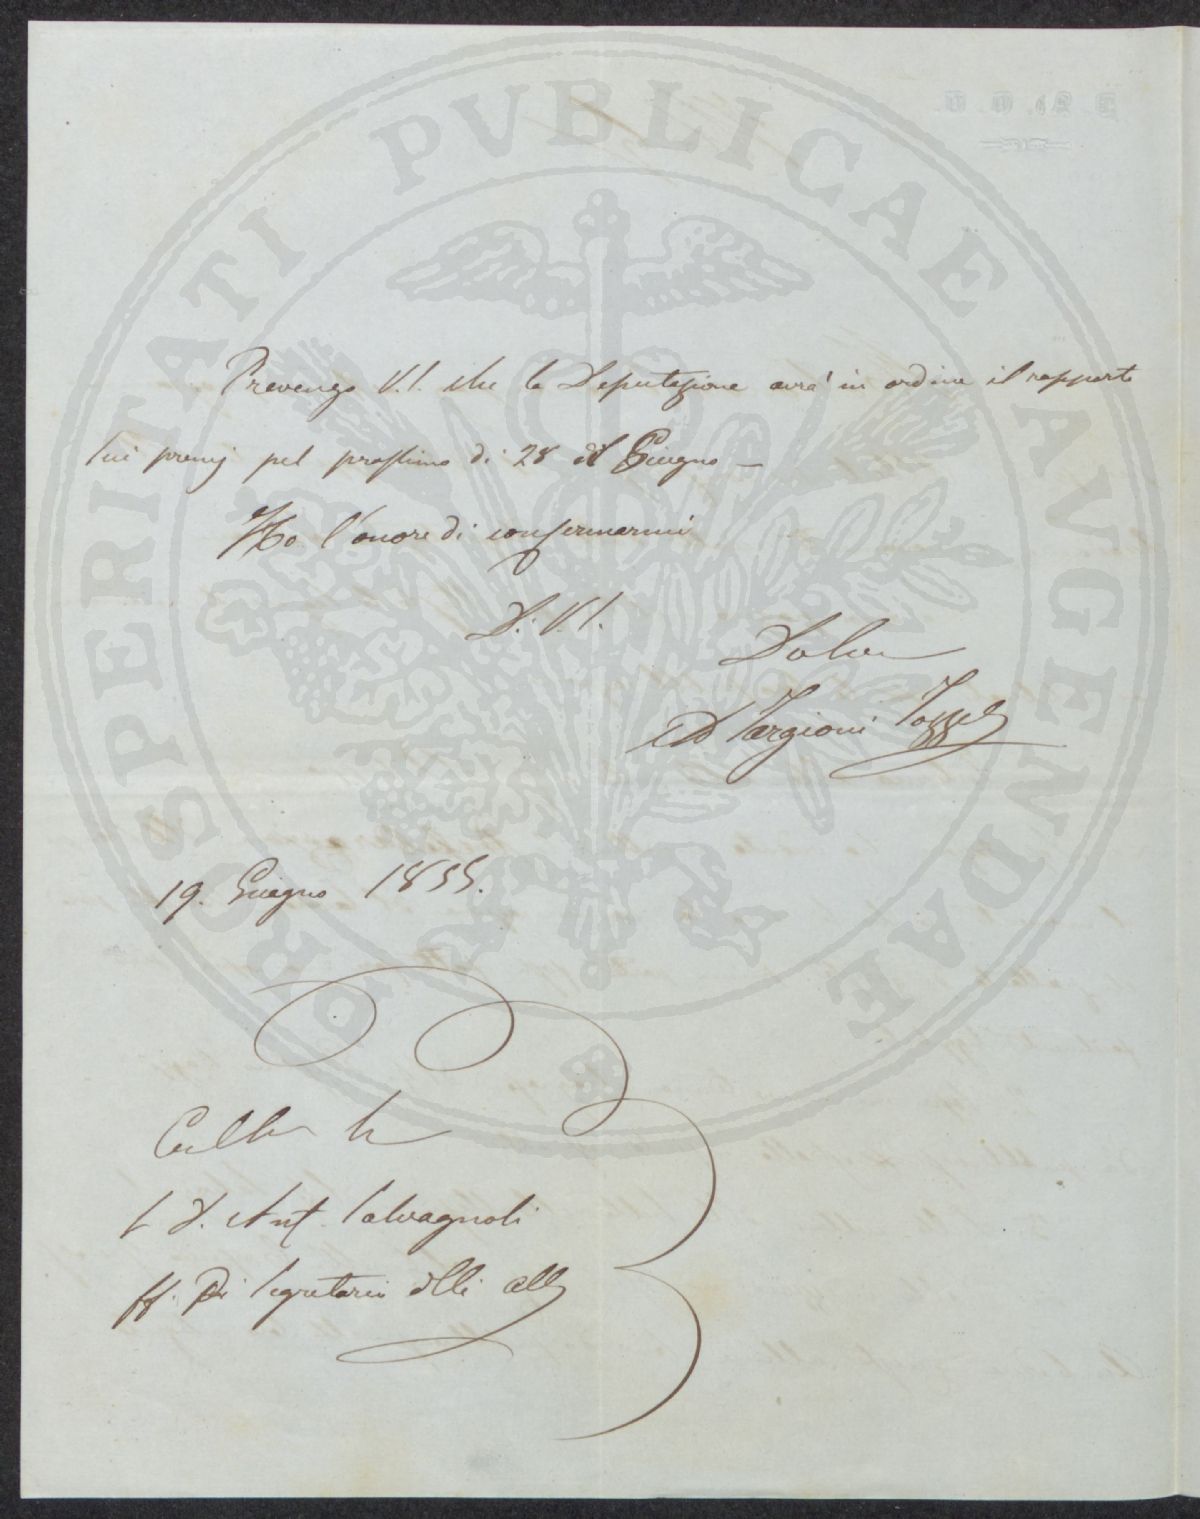 PROSPERITATI PUBLICAE AVGENDAE
Prevengo V.S. che la Deputazione avrà in ordine il rapporto
sui premj pel prossimo dì 28 Giugno —
Ho l'onore di confermarmi
D. V. S.
A Targioni Tozzetti
19. Giugno 1855.
S D. Ant. Salvagnoli
ff. Di Segretario